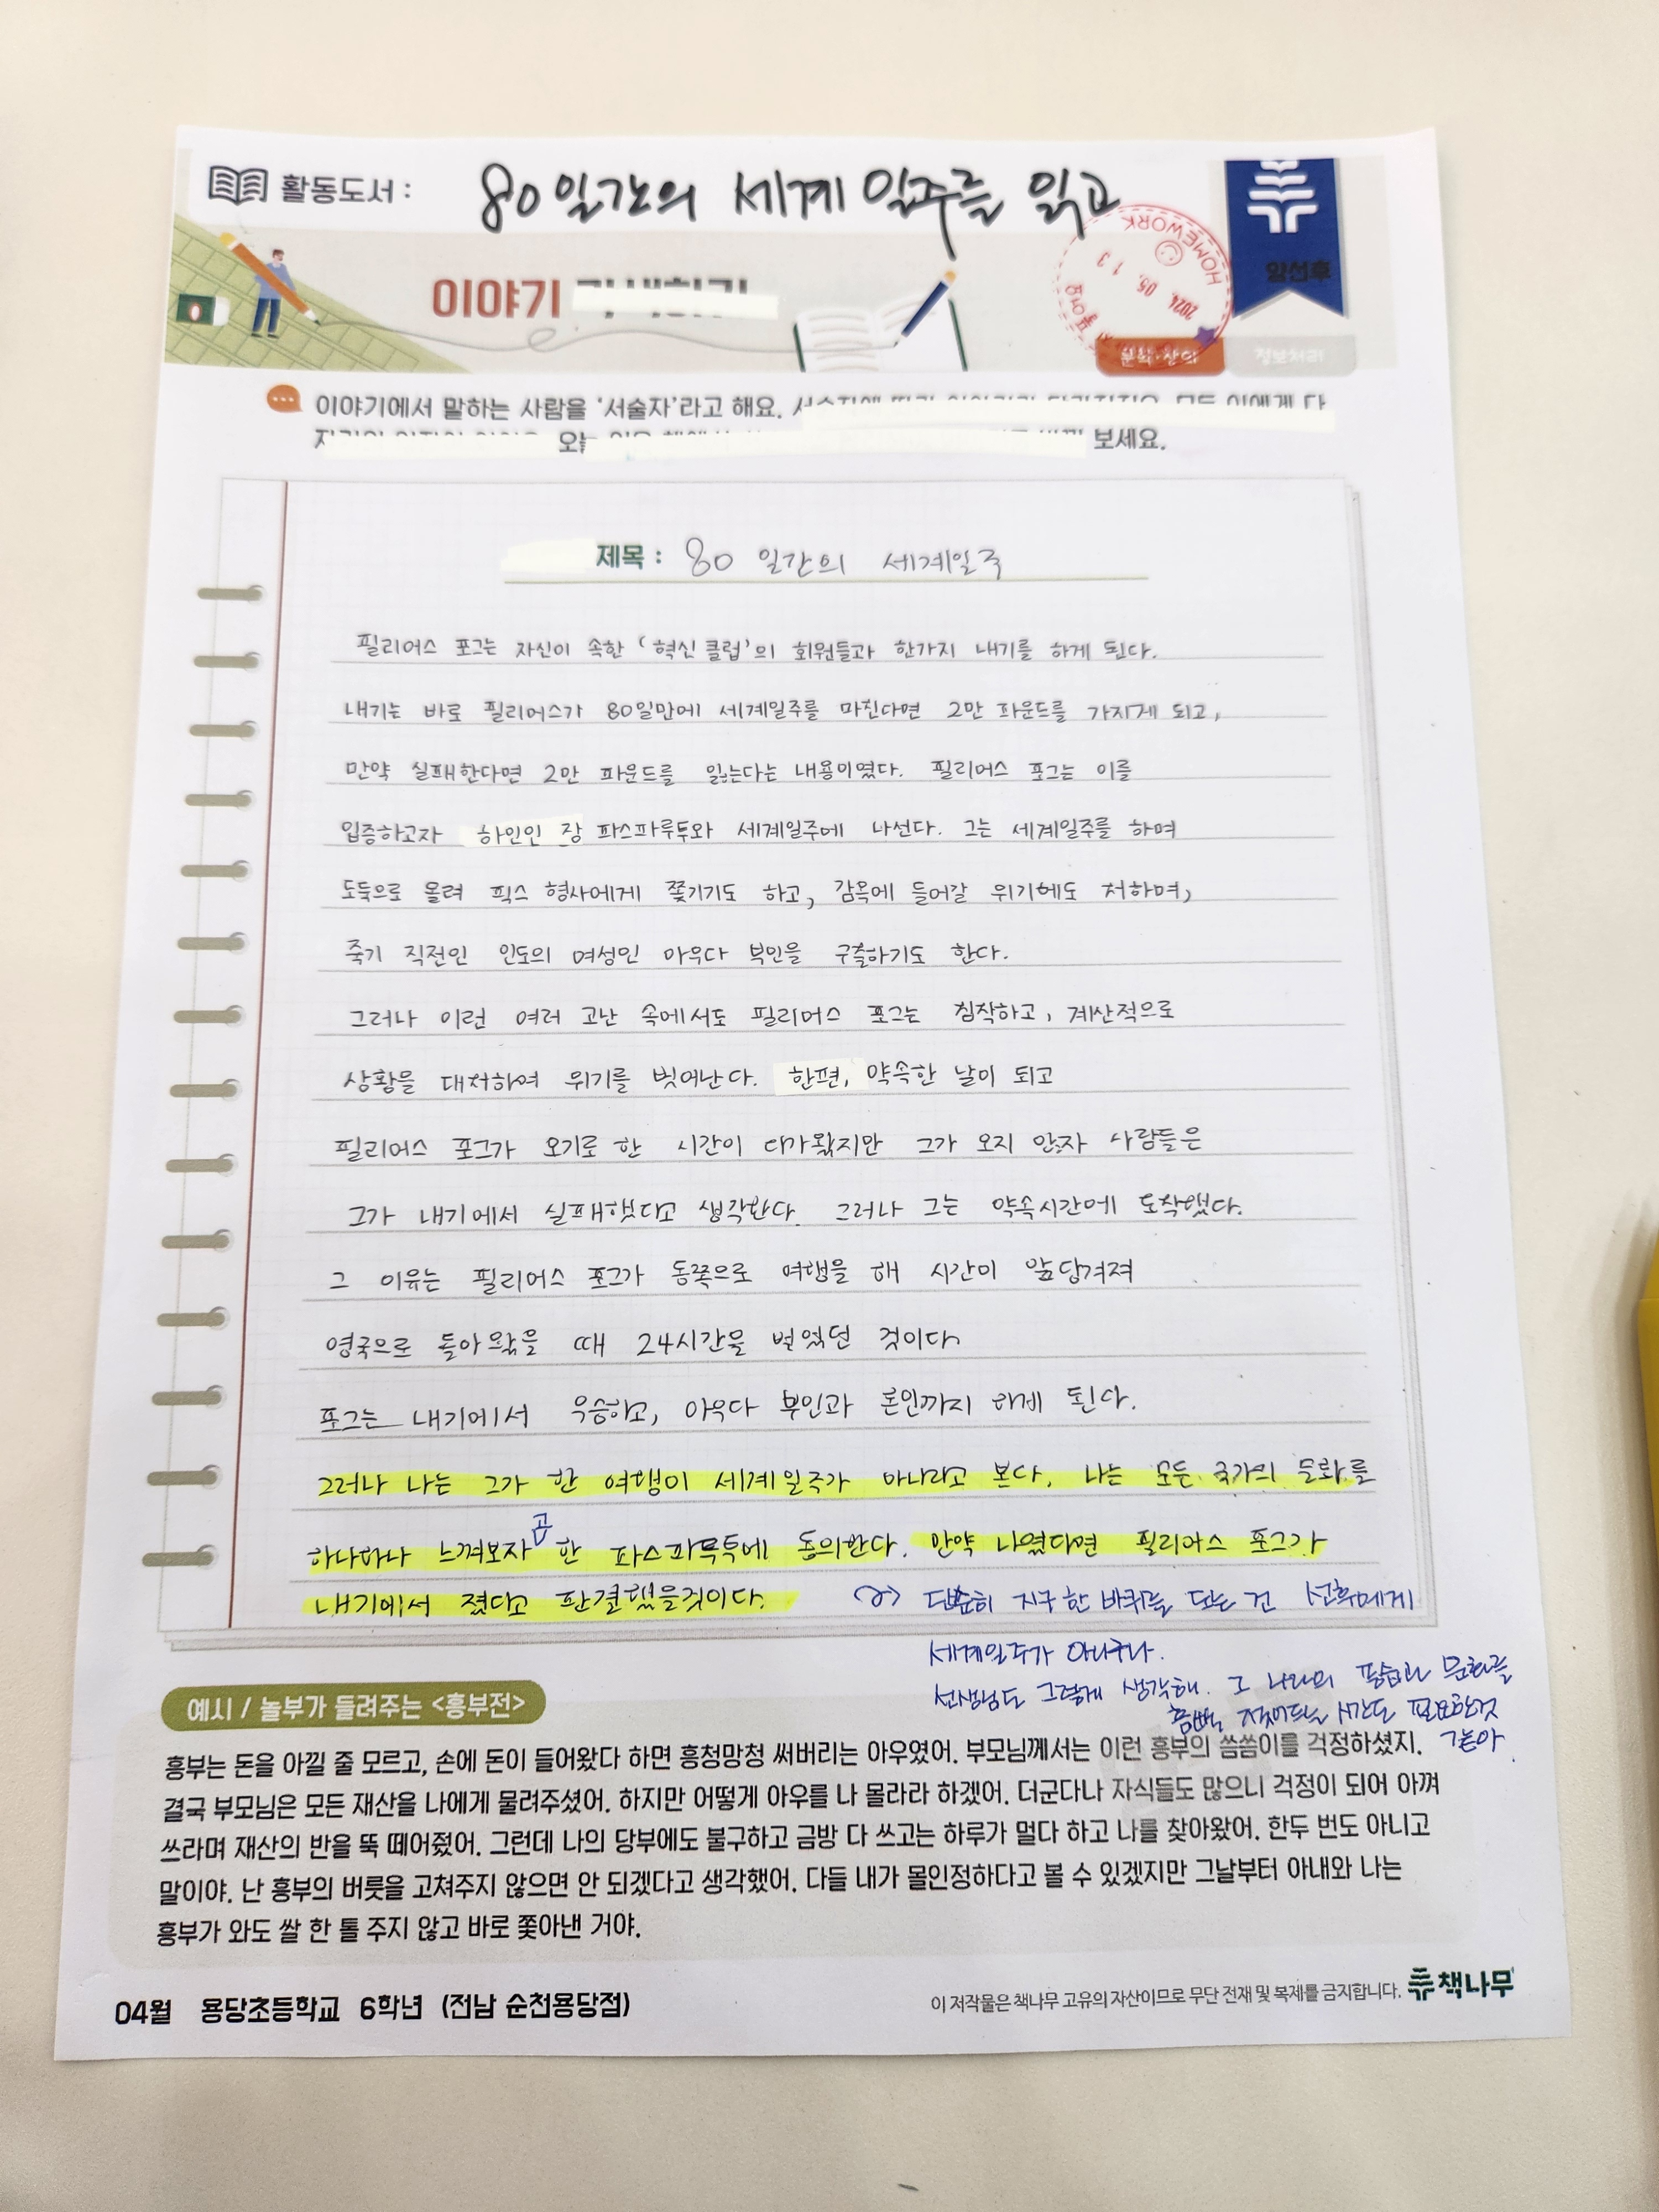 활동도서 : 80일간의 세계 일주를 읽고
HOMEWORK
2024. 05. 13
임선후
이야기
문학·창의
정보처리
이야기에서 말하는 사람을 '서술자'라고 해요.
보세요.
제목 : 80 일간의 세계일주
필리어스 포그는 자신이 속한 '혁신 클럽'의 회원들과 한가지 내기를 하게 된다.
내기는 바로 필리어스가 80일만에 세계일주를 마친다면 2만 파운드를 가지게 되고,
만약 실패한다면 2만 파운드를 잃는다는 내용이였다. 필리어스 포그는 이를
입증하고자 하인인 장 파스파루투와 세계일주에 나선다. 그는 세계일주를 하며
도둑으로 몰려 픽스 형사에게 쫓기기도 하고, 감옥에 들어갈 위기에도 처하며,
죽기 직전인 인도의 여성인 아우다 부인을 구출하기도 한다.
그러나 이런 여러 고난 속에서도 필리어스 포그는 침착하고, 계산적으로
상황을 대처하여 위기를 벗어난다. 한편, 약속한 날이 되고
필리어스 포그가 오기로 한 시간이 다가왔지만 그가 오지 않자 사람들은
그가 내기에서 실패했다고 생각한다. 그러나 그는 약속시간에 도착했다.
그 이유는 필리어스 포그가 동쪽으로 여행을 해 시간이 앞당겨져
영국으로 돌아왔을 때 24시간을 벌었던 것이다
포그는 내기에서 우승하고, 아우다 부인과 혼인까지 하게 된다.
그러나 나는 그가 한 여행이 세계일주가 아니라고 본다. 나는 모든 국가의 문화를
하나하나 느껴보자고 한 파스파루투에 동의한다. 만약 나였다면 필리어스 포그가
내기에서 졌다고 판결했을것이다.
단순히 지구 한 바퀴를 도는 건 선후에게
세계일주가 아니구나.
선생님도 그렇게 생각해. 그 나라의 풍습과 문화를
흠뻑 젖어드는 시간도 필요한것
같아.
예시 / 놀부가 들려주는 <흥부전>
흥부는 돈을 아낄 줄 모르고, 손에 돈이 들어왔다 하면 흥청망청 써버리는 아우였어. 부모님께서는 이런 흥부의 씀씀이를 걱정하셨지.
결국 부모님은 모든 재산을 나에게 물려주셨어. 하지만 어떻게 아우를 나 몰라라 하겠어. 더군다나 자식들도 많으니 걱정이 되어 아껴
쓰라며 재산의 반을 뚝 떼어줬어. 그런데 나의 당부에도 불구하고 금방 다 쓰고는 하루가 멀다 하고 나를 찾아왔어. 한두 번도 아니고
말이야. 난 흥부의 버릇을 고쳐주지 않으면 안 되겠다고 생각했어. 다들 내가 몰인정하다고 볼 수 있겠지만 그날부터 아내와 나는
흥부가 와도 쌀 한 톨 주지 않고 바로 쫓아낸 거야.
04월 용당초등학교 6학년 (전남 순천용당점)
이 저작물은 책나무 고유의 자산이므로 무단 전재 및 복제를 금지합니다. 책나무